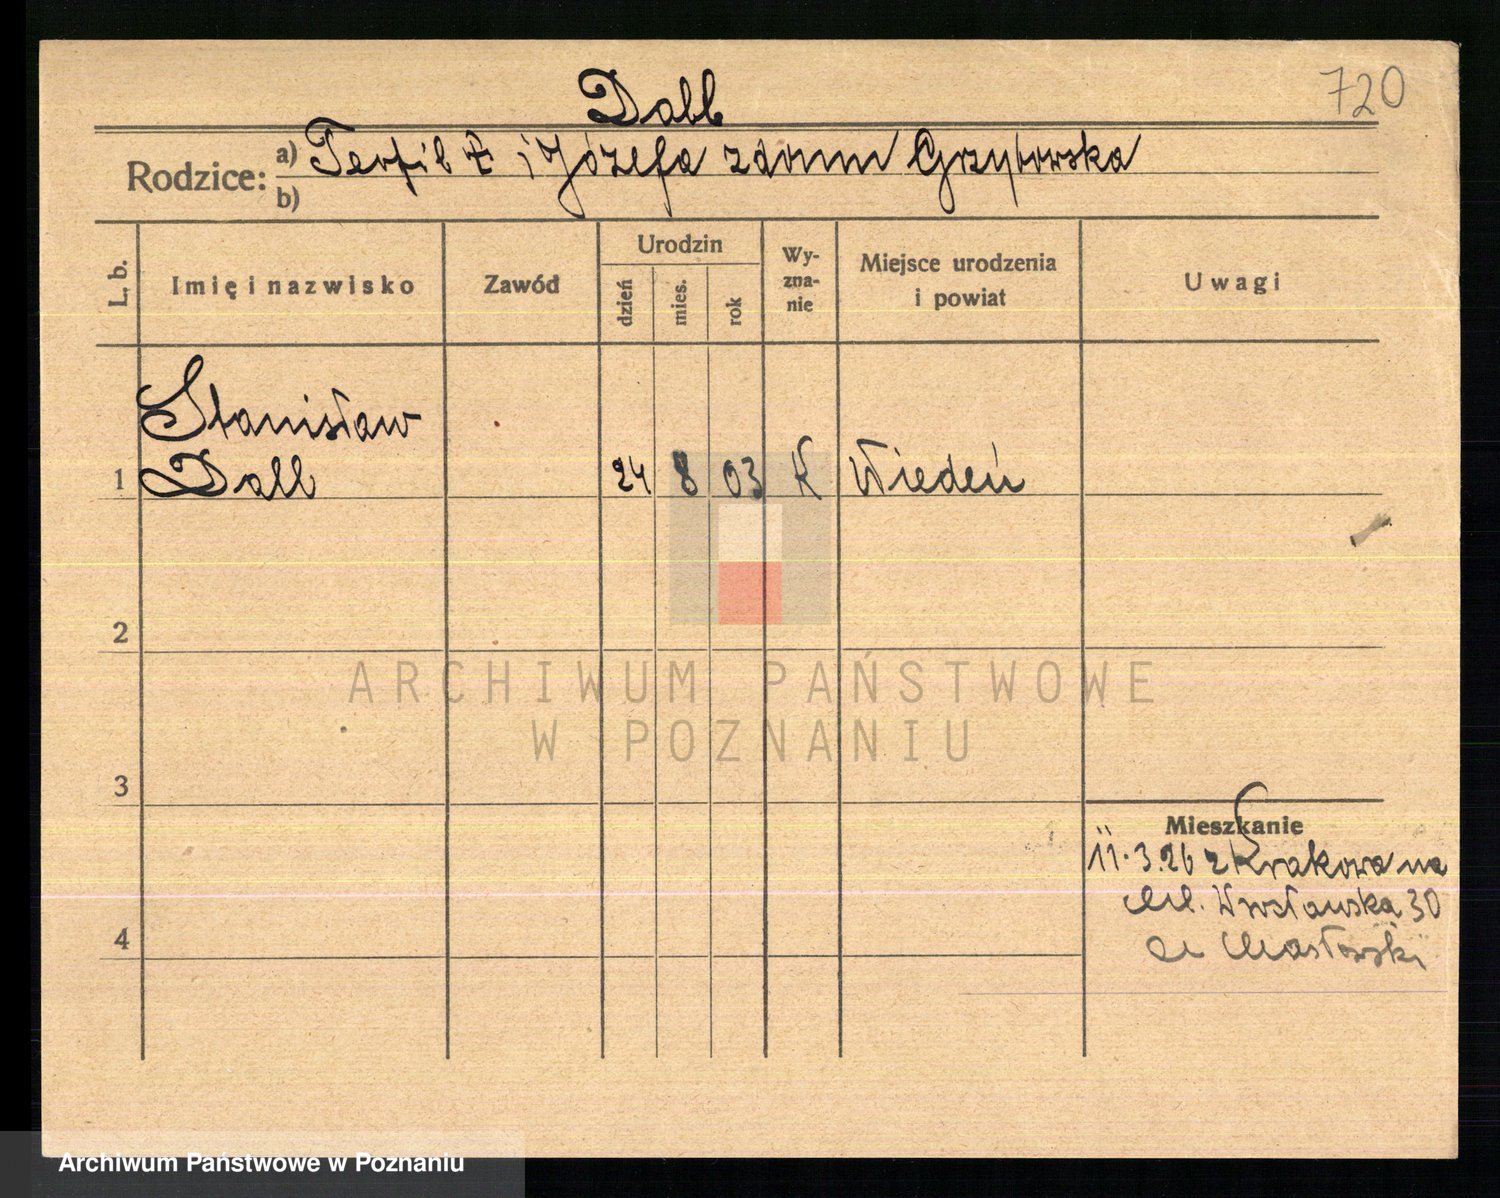 720
Dall
Rodzice: a) Teofil ł i Józefa z domu Grzybowska
b)
L. b.
Imię i nazwisko
Zawód
Urodzin
dzień
mies.
rok
Wy-
zna-
nie
Miejsce urodzenia
i powiat
Uwagi
Stanisław
1 Dall 24 8 03 K Wiedeń
2
ARCHIWUM PAŃSTWOWE
W POZNANIU
3
Mieszkanie
11.3.26 z Krakowa na
ul. Wrocławska 30
4
Archiwum Państwowe w Poznaniu